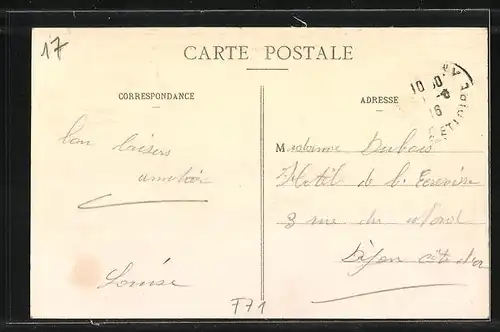 17
CARTE POSTALE
CORRESPONDANCE
ADRESSE
10
16
bon baisers
Louise
Madame Dubois
Hotel de la
3 rue du Nord
Dijon côte d'or
F71